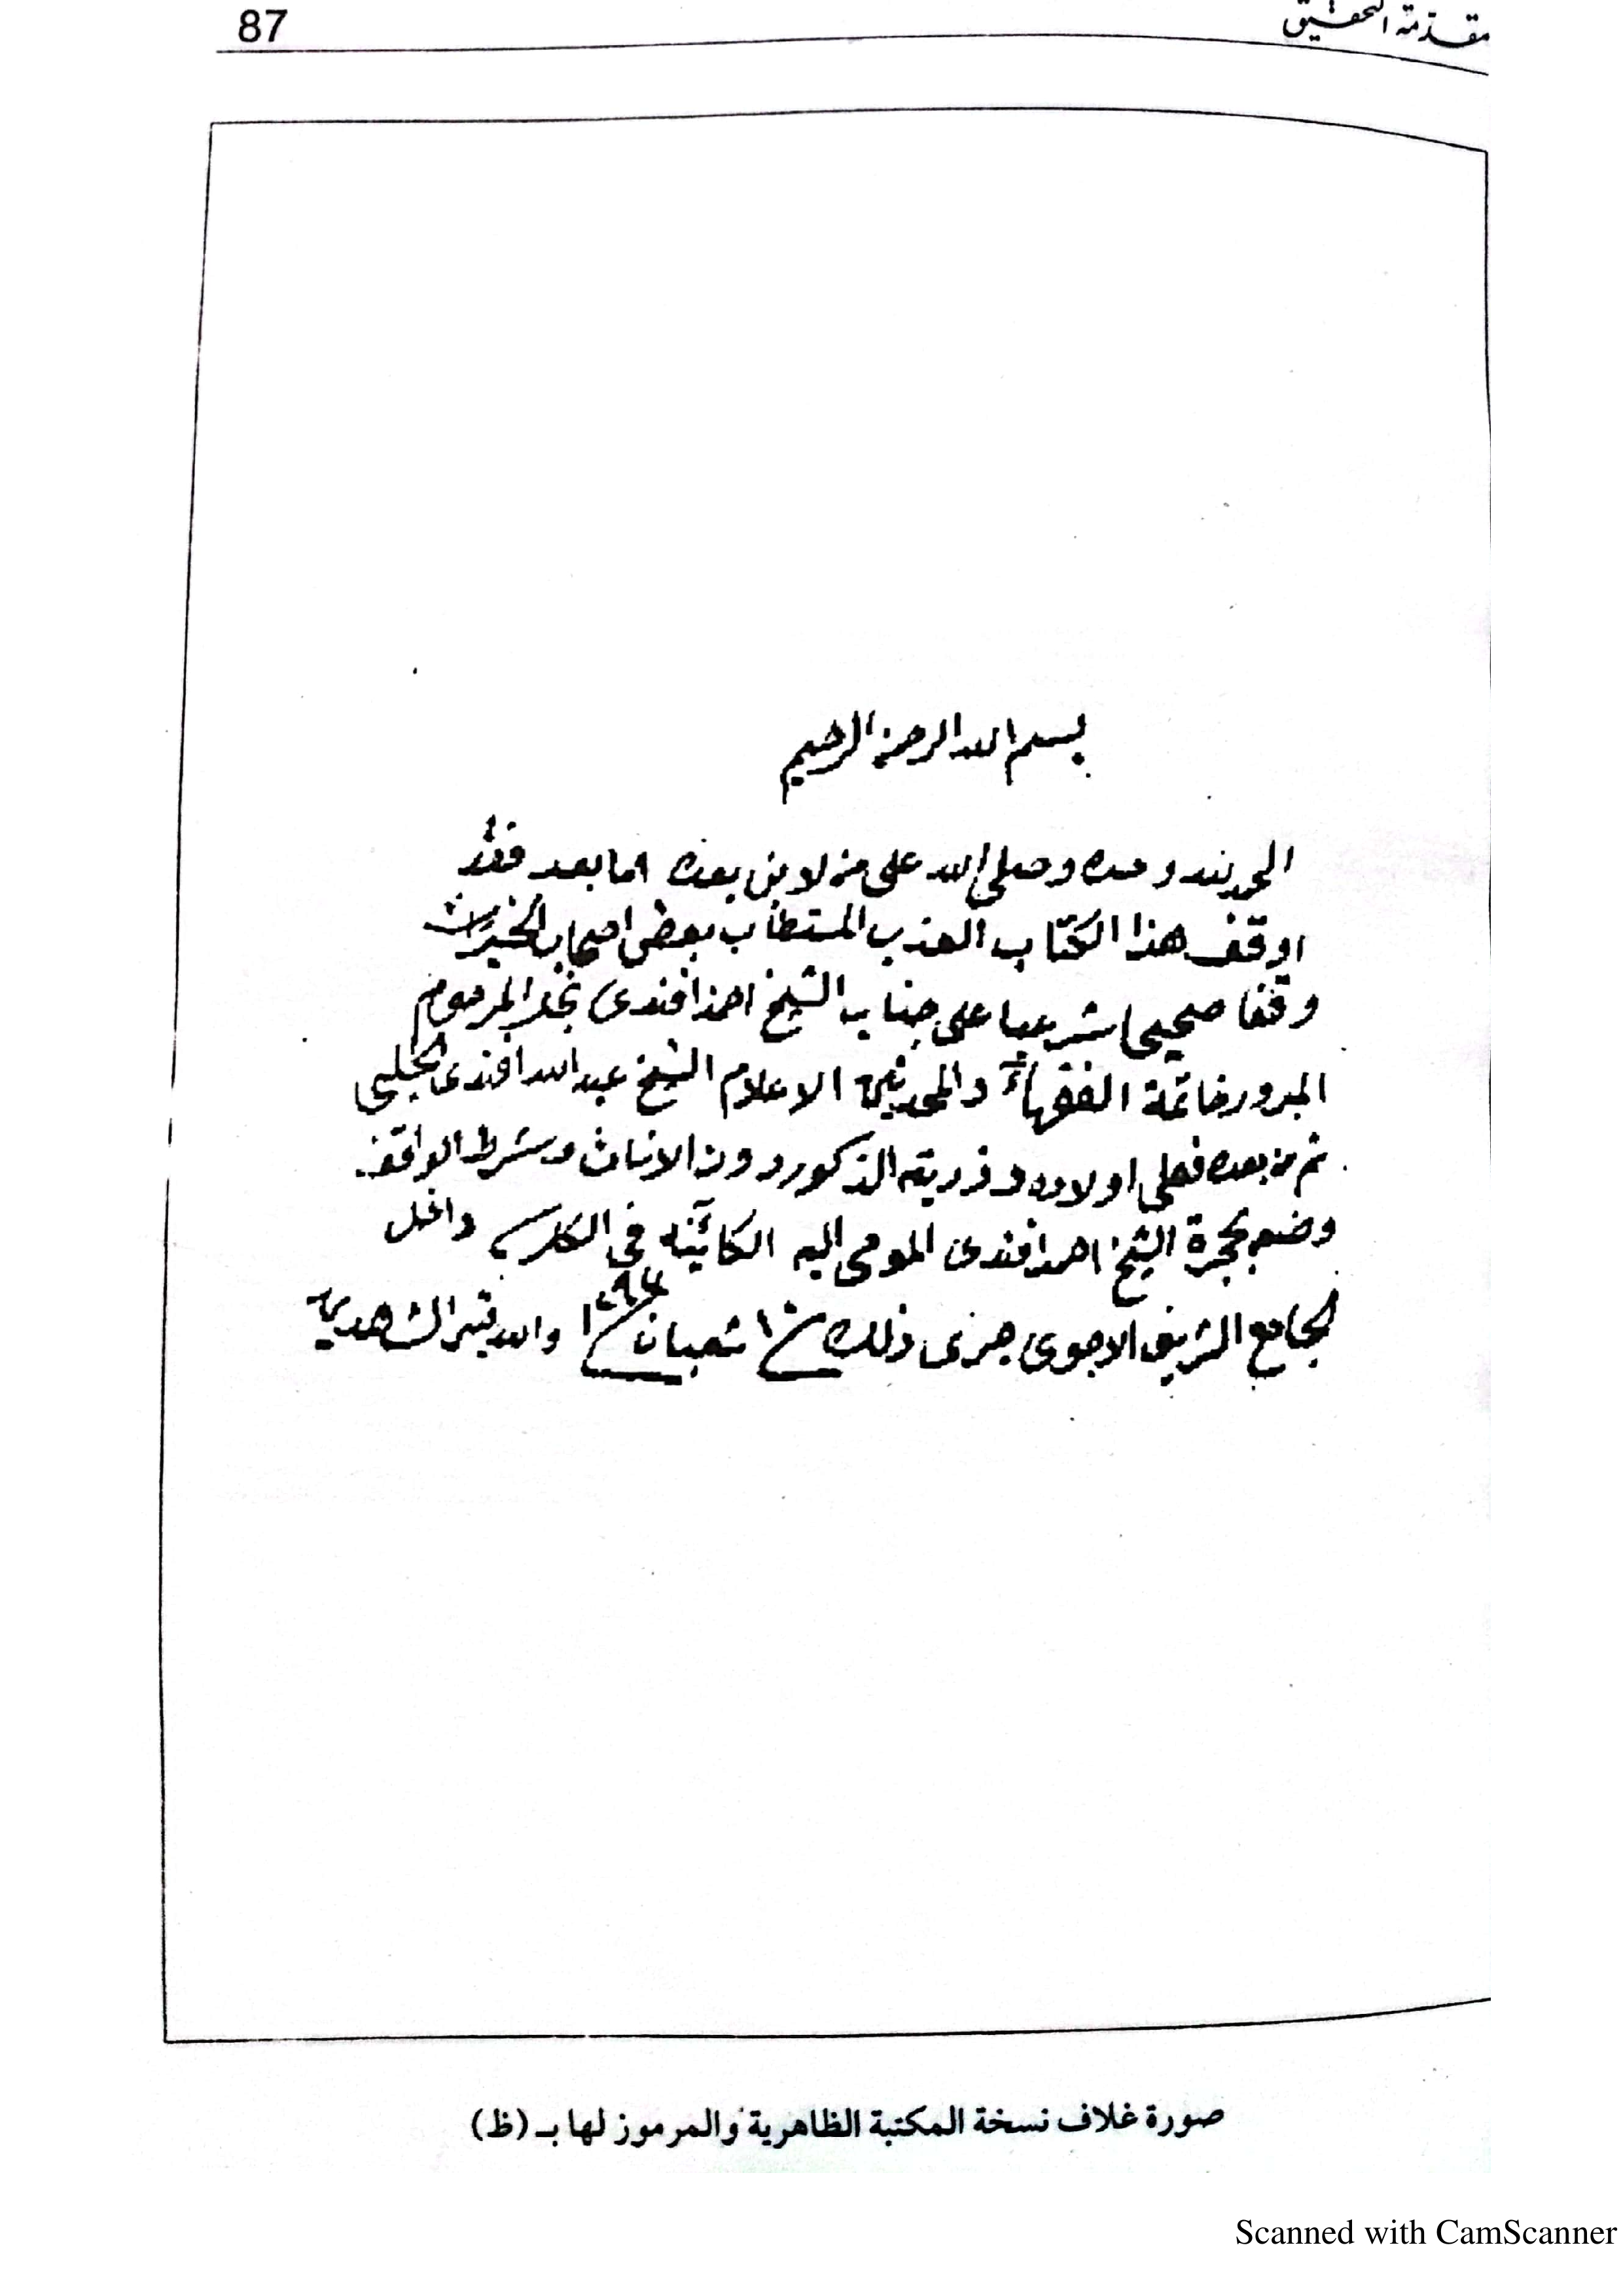 87
مقدمة التحقيق
بسم الله الرحمن الرحيم
الحمد لله وحده وصلى الله على من لا نبي بعده اما بعد فقد
اوقف هذا الكتاب العذب المستطاب بعض اصحاب الخيرات
وقفا صحيحا شرعيا على جناب الشيخ احمد افندى نجل المرحوم
المبرور خاتمة الفقهاء والمحدثين الاعلام الشيخ عبد الله افندى الحلبى
ثم من بعده فعلى اولاده وذريته الذكور دون الاناث وشرط الواقف
وضعه بحجرة الشيخ احمد افندى المومى اليه الكائنة فى داخل
الجامع الشريف الاموى جرى ذلك فى شعبان والله خير الشاهدين
صورة غلاف نسخة المكتبة الظاهرية والمرموز لها بـ (ظ)
Scanned with CamScanner